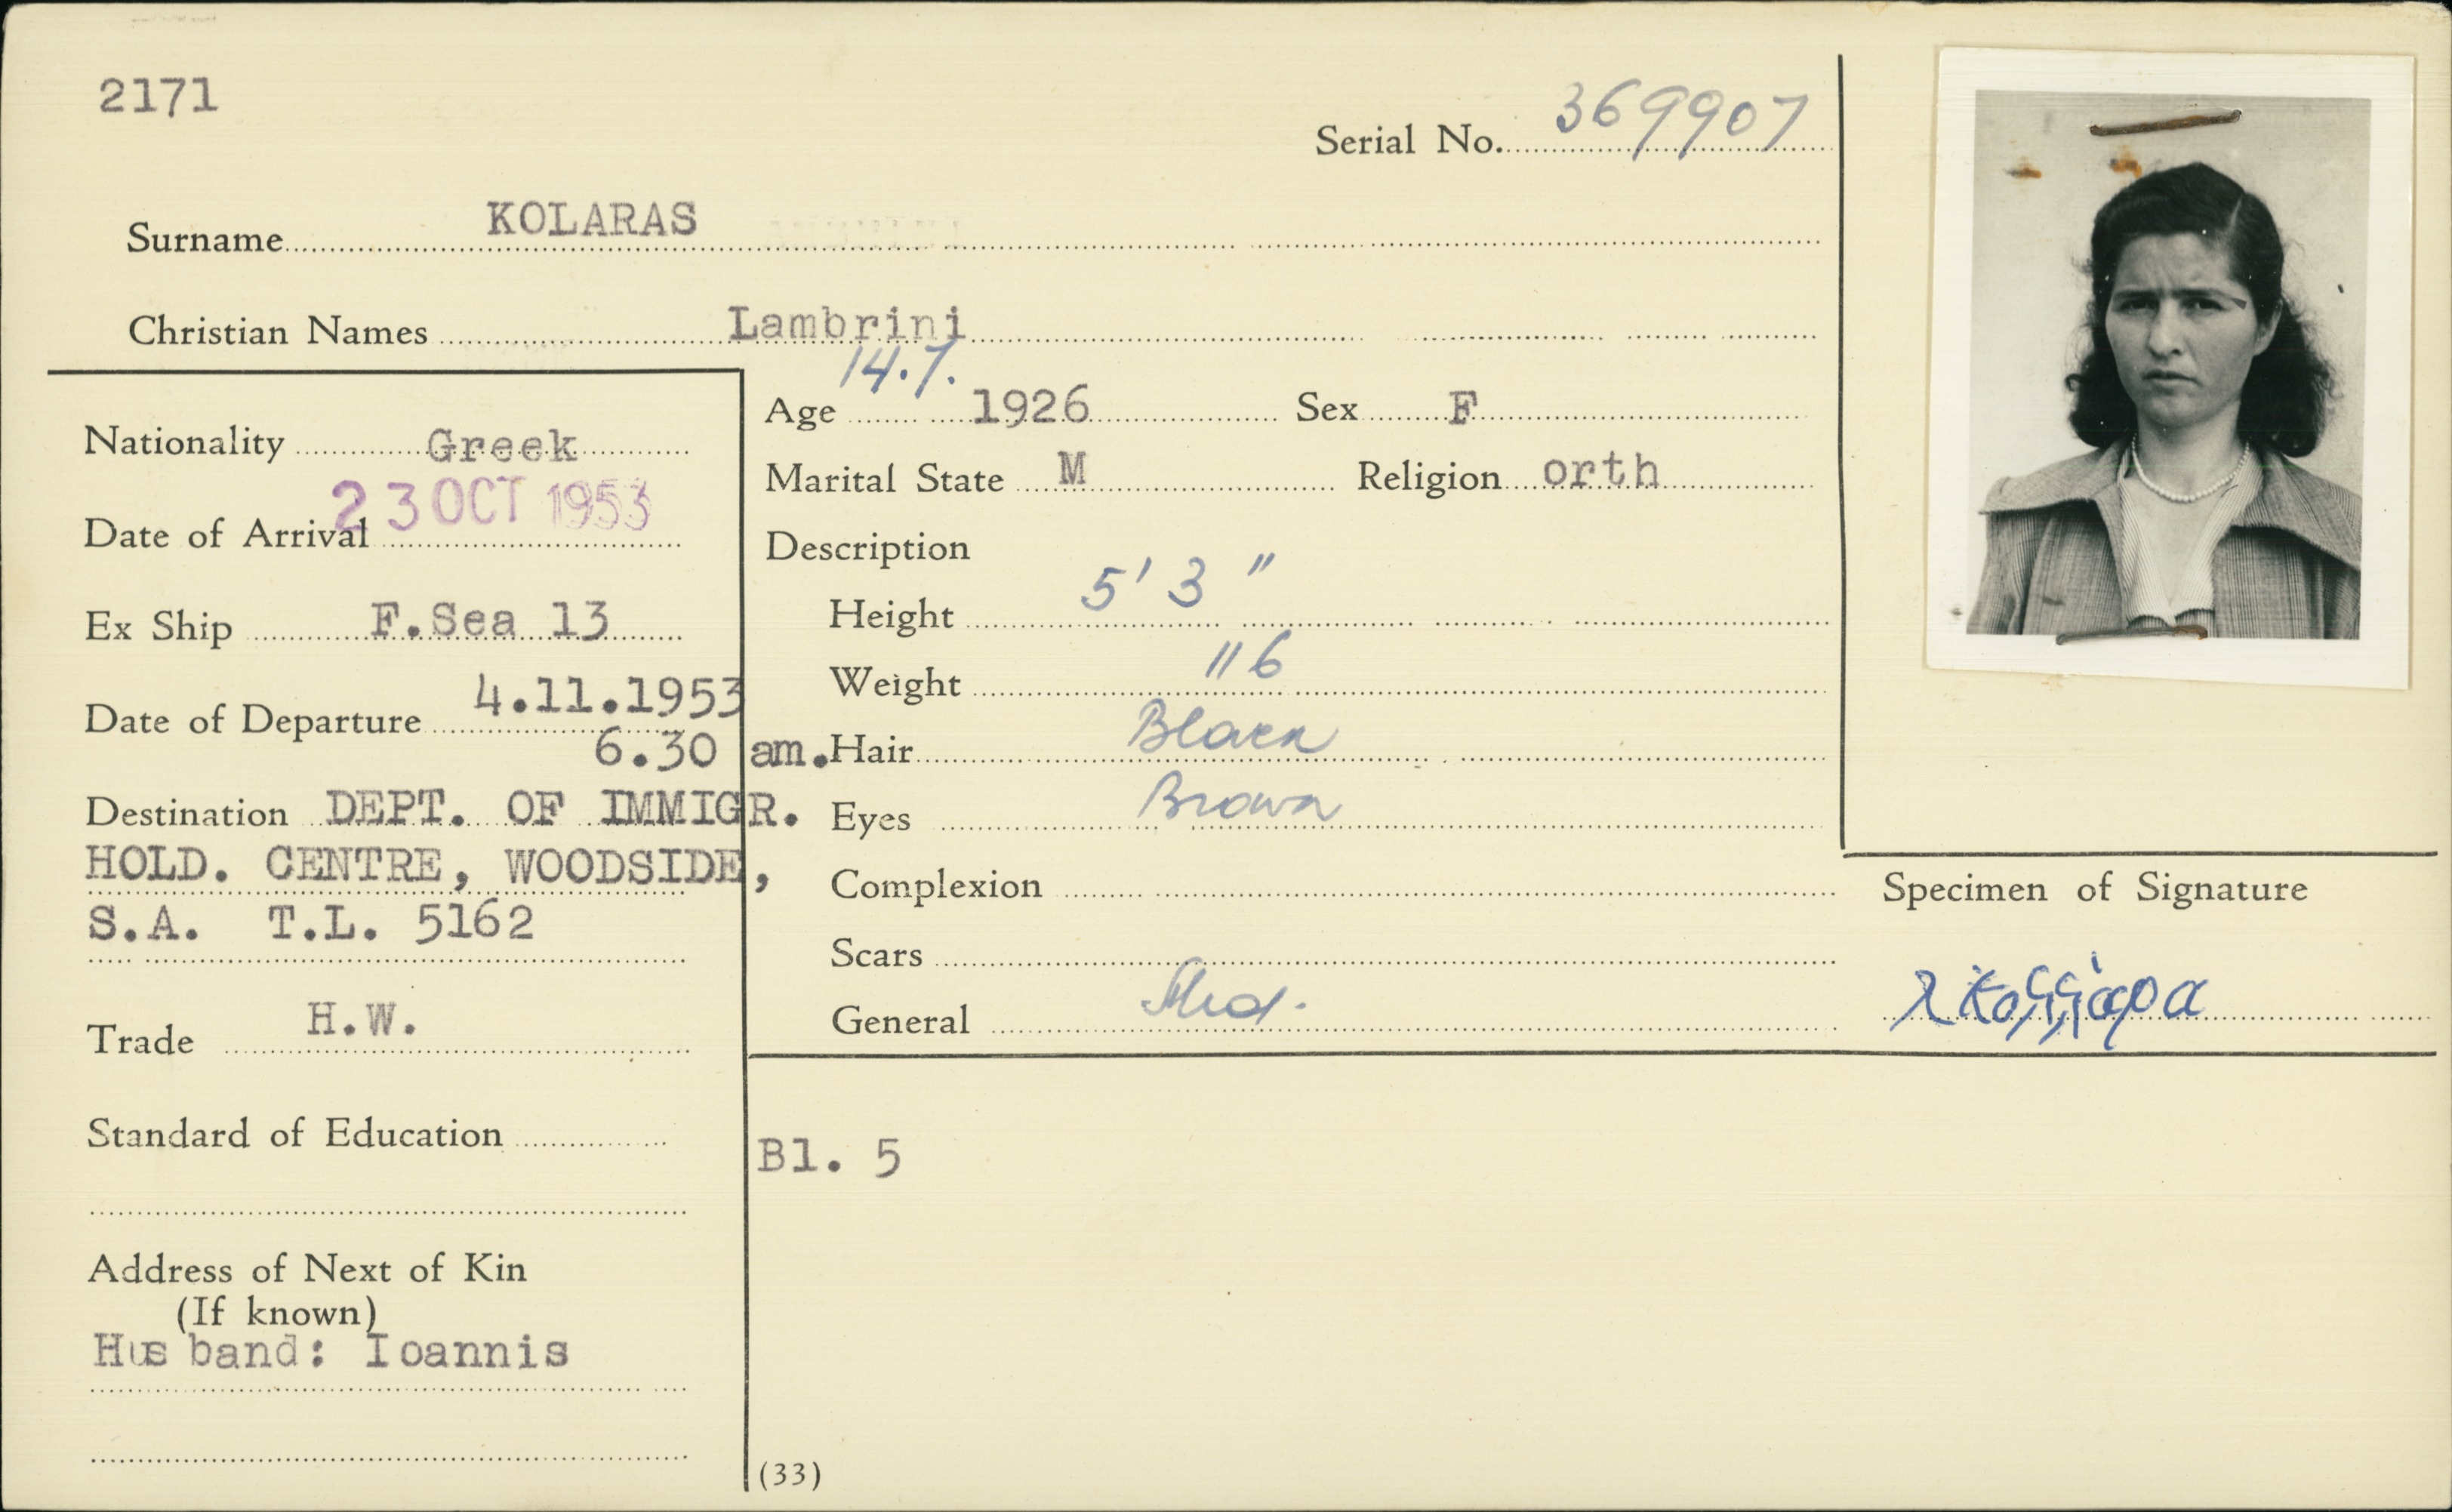 2171
Serial No. 369907
Surname KOLARAS
Christian Names Lambrini
Nationality Greek
Date of Arrival 23 OCT 1953
Ex Ship F.Sea 13
Date of Departure 4.11.1953
6.30 am.
Destination DEPT. OF IMMIGR.
HOLD. CENTRE, WOODSIDE,
S.A. T.L. 5162
Trade H.W.
Standard of Education
Address of Next of Kin
(If known)
Husband: Ioannis
14.7.
Age 1926 Sex F
Marital State M Religion orth
Description
Height 5' 3"
Weight 116
Hair Black
Eyes Brown
Complexion
Scars
General Med.
Specimen of Signature
Bl. 5
(33)